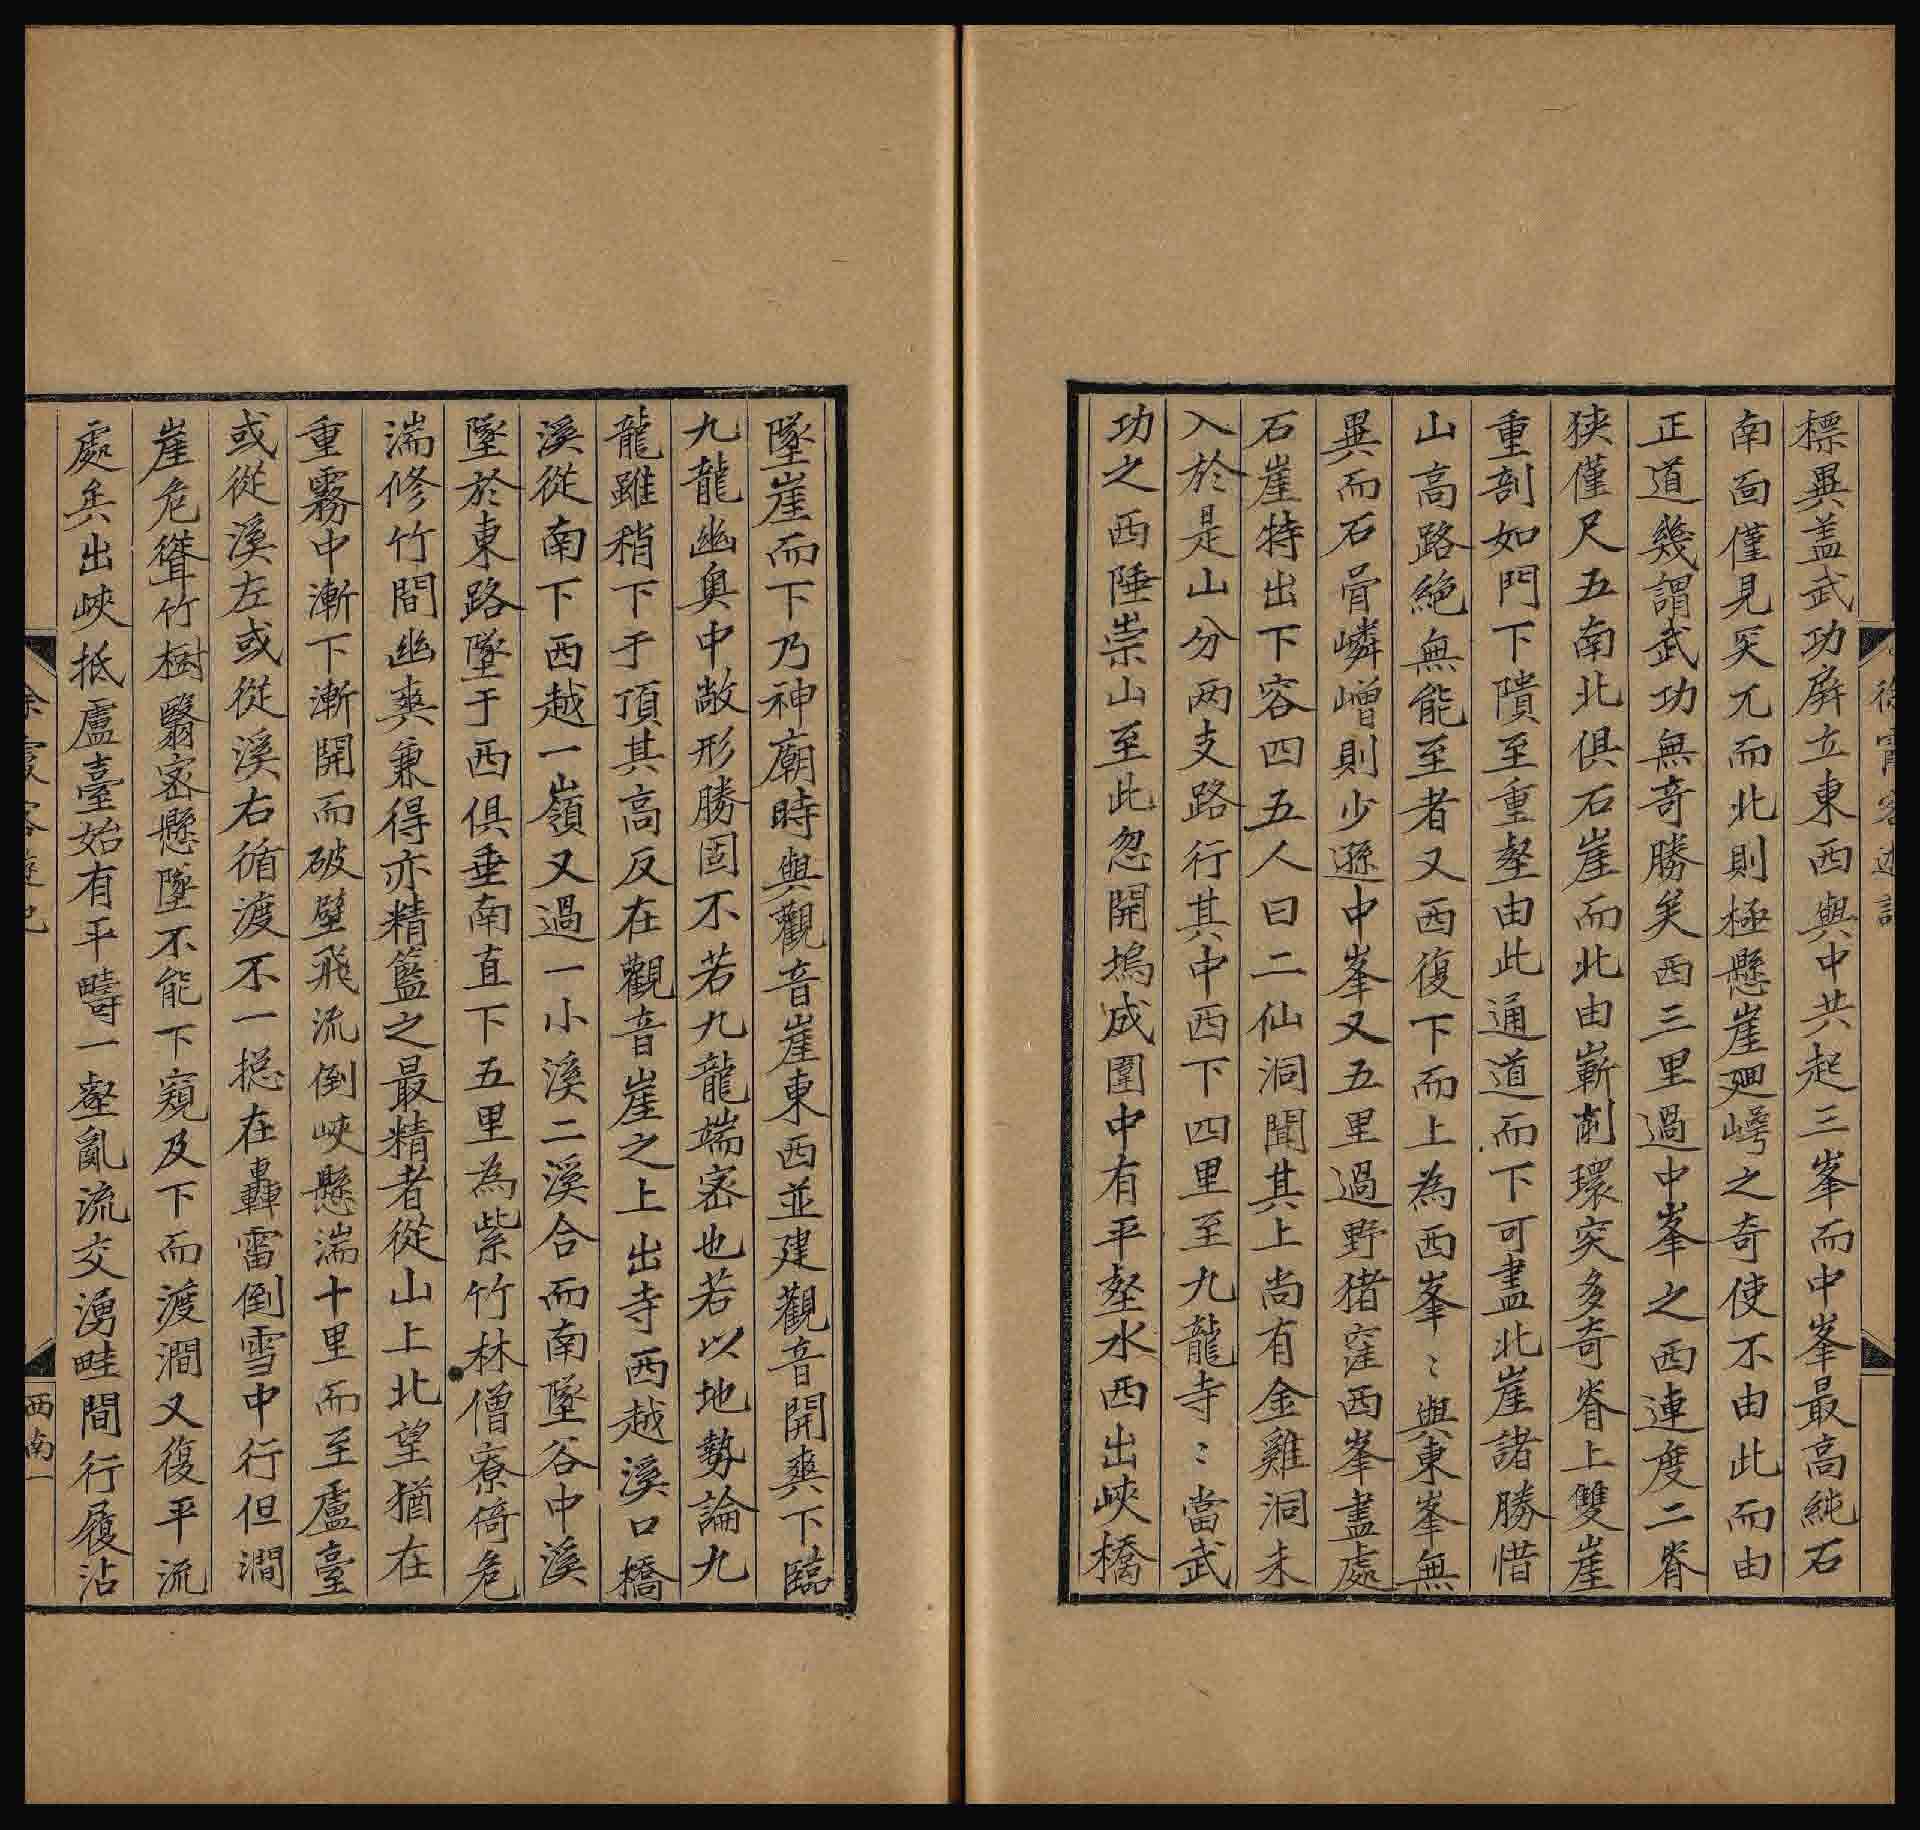 標異盖武功屏立東西與中共起三峯而中峯最高純石
南面僅見突兀而北則極懸崖廻崿之奇使不由此而由
正道幾謂武功無奇勝矣西三里過中峯之西連度二脊
狹僅尺五南北俱石崖而北由嶄削環突多奇脊上雙崖
重剖如門下隤至重壑由此通道而下可盡北崖諸勝惜
山高路絶無能至者又西復下而上為西峯〻與東峯無
異而石骨嶙嶒則少遜中峯又五里過野猪窪西峯盡處
石崖特出下容四五人曰二仙洞聞其上尚有金雞洞未
入於是山分两支路行其中西下四里至九龍寺〻當武
功之西陲崇山至此忽開塢成圍中有平壑水西出峽橋
墜崖而下乃神廟時與觀音崖東西並建觀音開爽下臨
九龍幽奥中敞形勝固不若九龍端宻也若以地勢論九
龍雖稍下于頂其高反在觀音崖之上出寺西越溪口橋
溪從南下西越一嶺又過一小溪二溪合而南墜谷中溪
墜於東路墜于西俱垂南直下五里為紫竹林僧寮倚危
湍修竹間幽爽兼得亦精籃之最精者從山上北望猶在
重霧中漸下漸開而破壁飛流倒峽懸湍十里而至盧臺
或從溪左或從溪右循渡不一捴在轟雷倒雪中行但澗
崖危聳竹樹翳宻懸墜不能下窺及下而渡澗又復平流
處矣出峽抵盧臺始有平疇一壑亂流交湧畦間行履沾
西南一